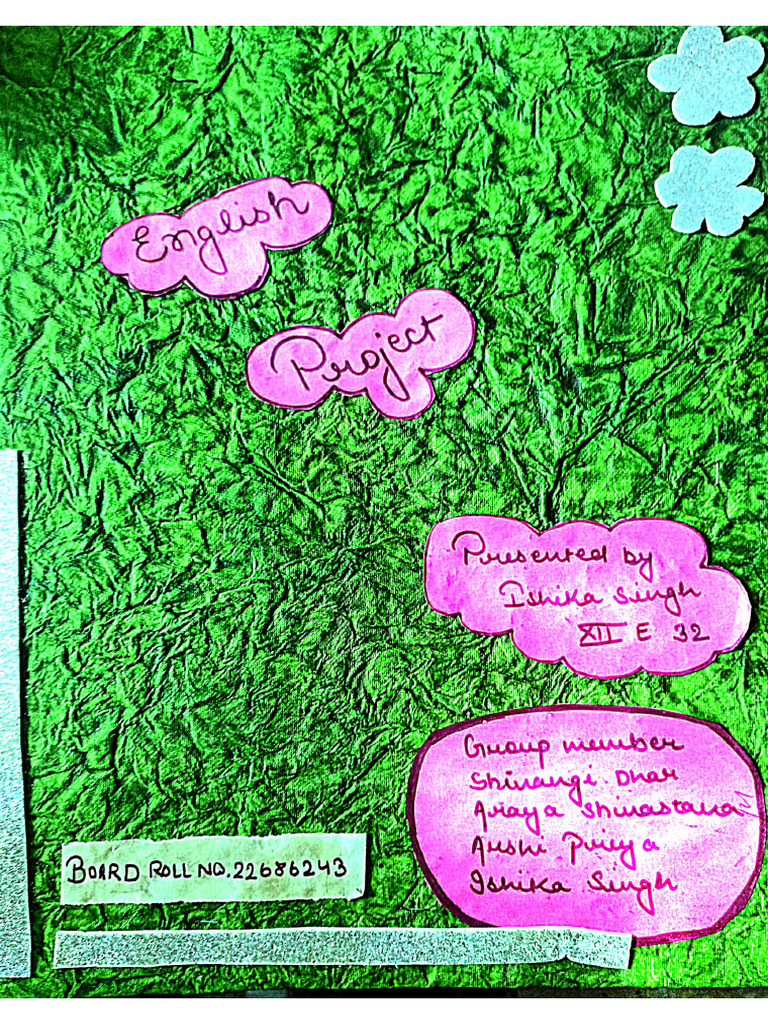 English
Project
Presented by
Ishika Singh
XII E 32
Group member
Shivangi. Dhar
Araya Shivastava
Arshi Priya
Ishika Singh
BOARD ROLL NO. 22686243